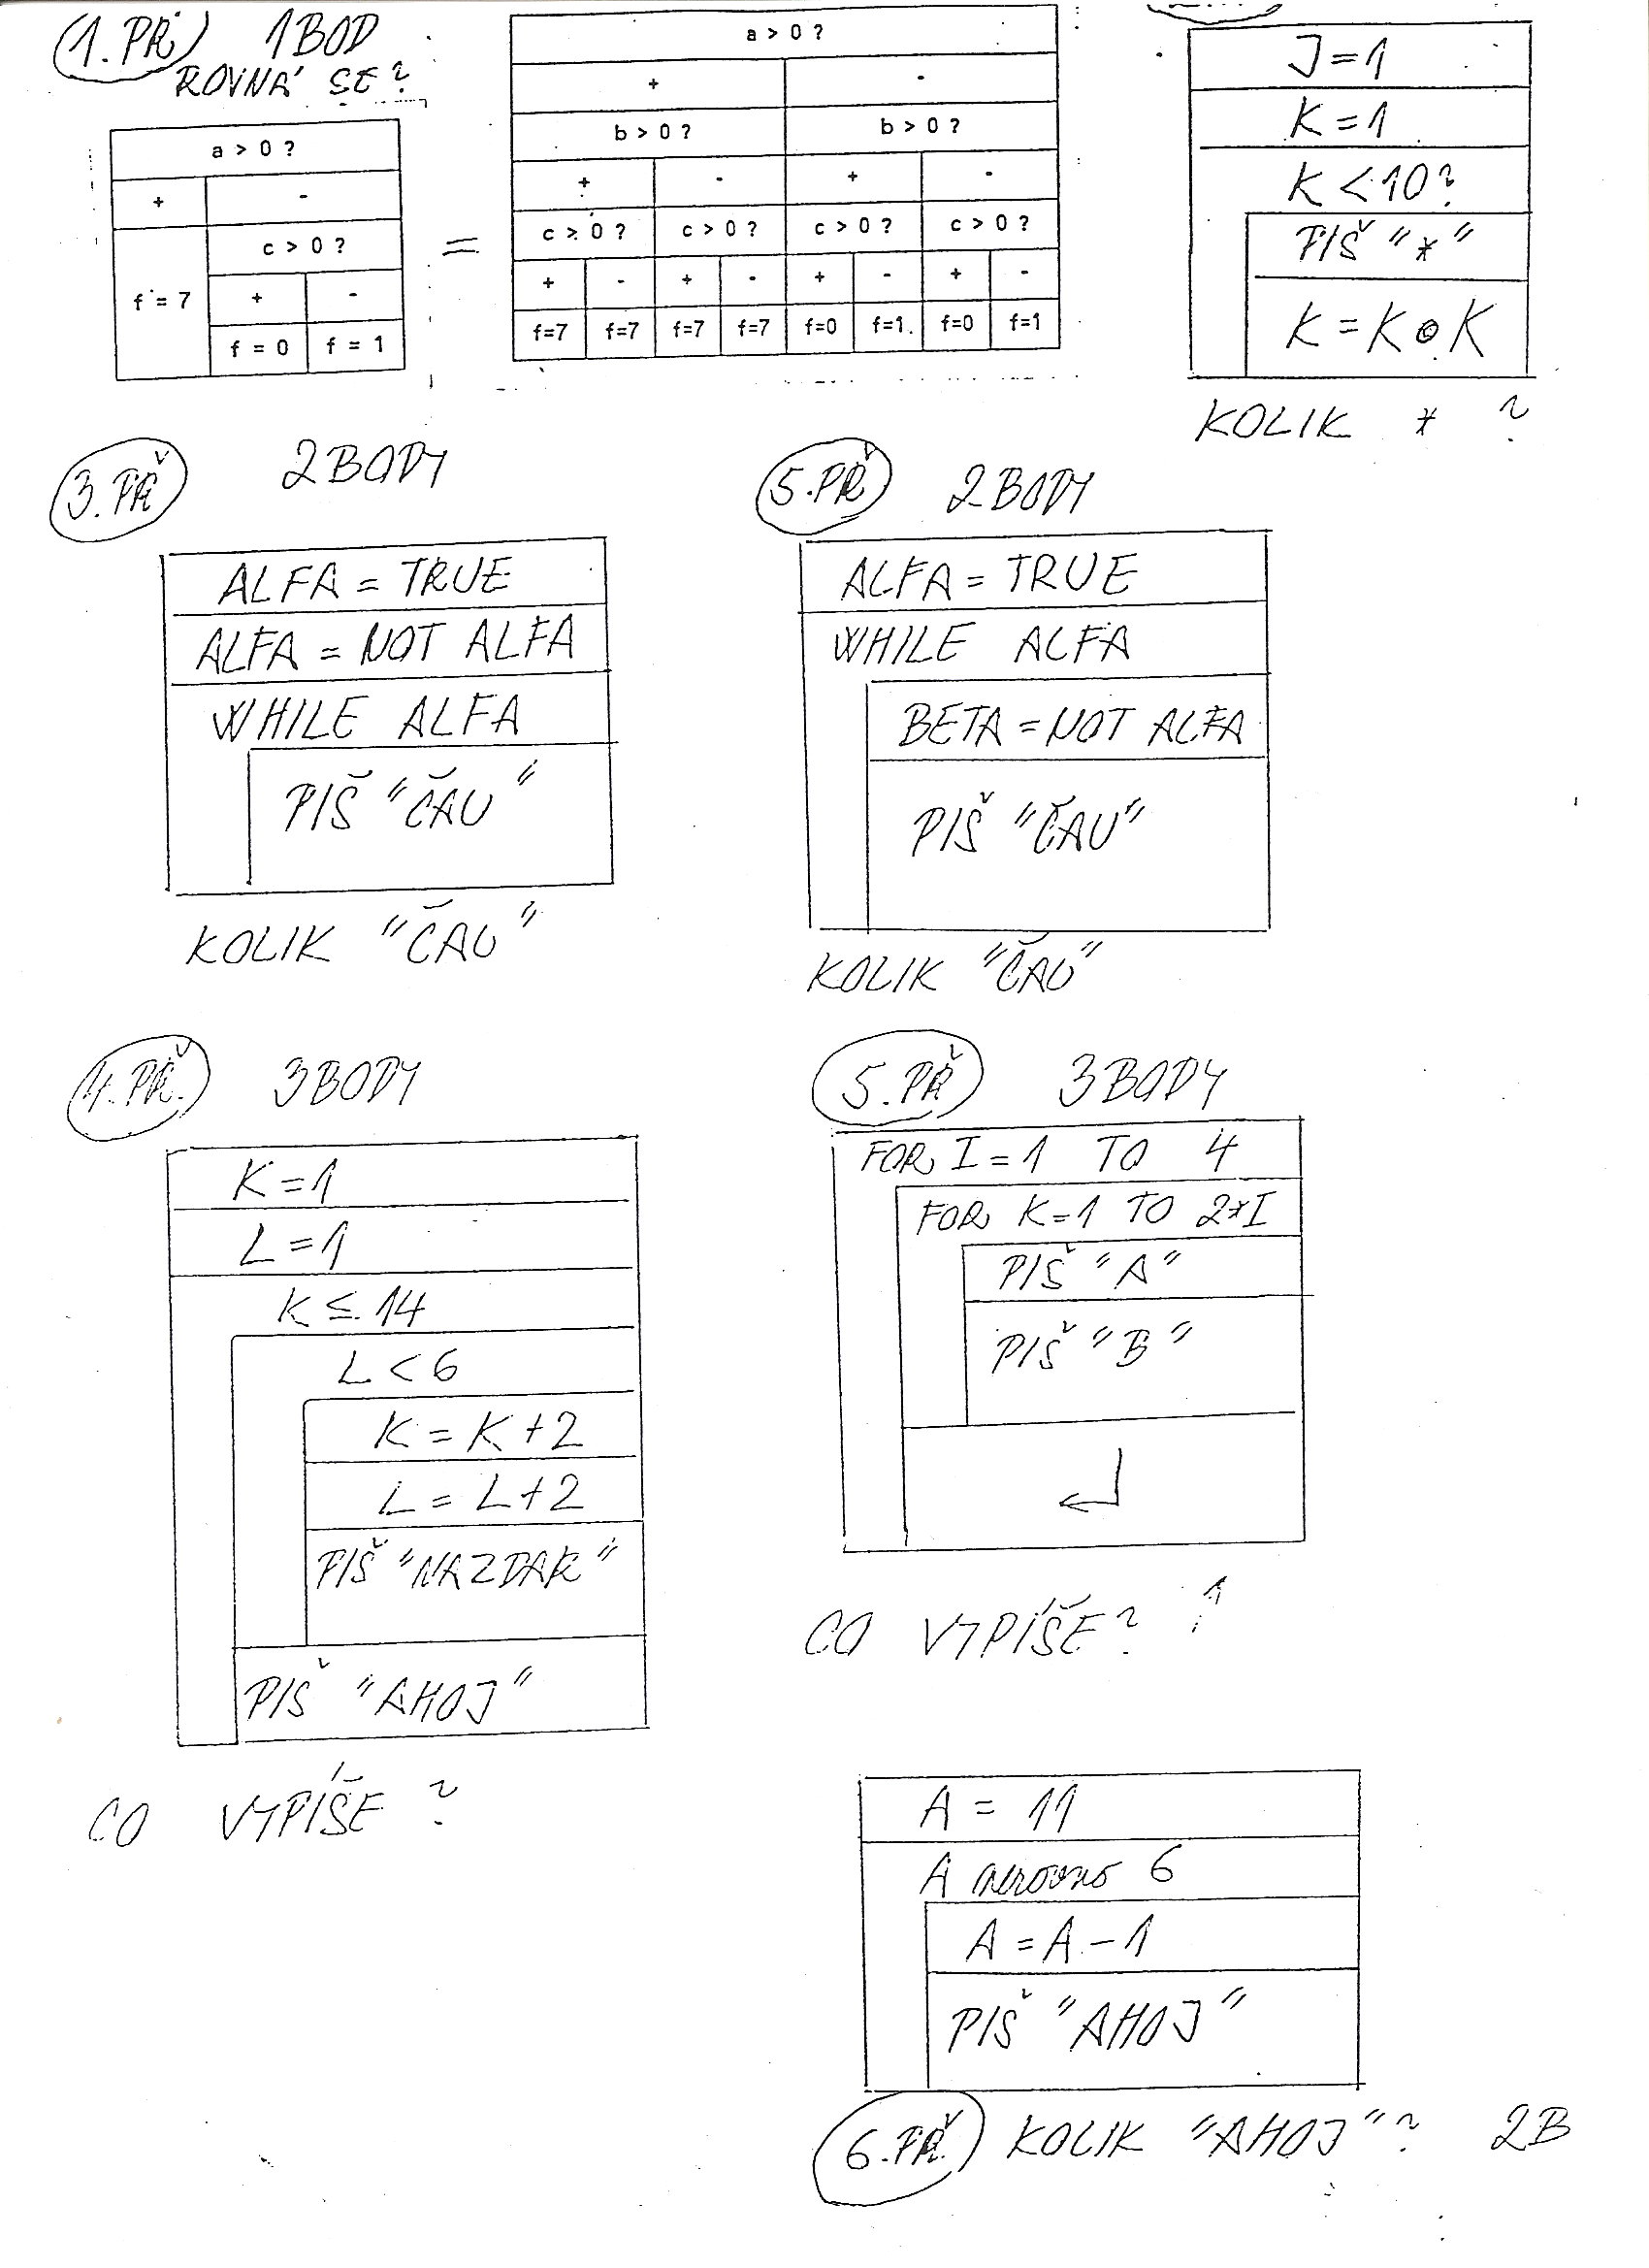 1.PŘ 1BOD
ROVNÁ SE?
a > 0 ?
+ -
c > 0 ?
f = 7 + -
f = 0 f = 1
=
a > 0 ?
+ -
b > 0 ? b > 0 ?
+ - + -
c > 0 ? c > 0 ? c > 0 ? c > 0 ?
+ - + - + - + -
f=7 f=7 f=7 f=7 f=0 f=1 f=0 f=1
J=1
K=1
K<10?
PIŠ "*"
K=K*K
KOLIK * ?
3.PŘ 2BODY
ALFA = TRUE
ALFA = NOT ALFA
WHILE ALFA
PIŠ "ČAU"
KOLIK "ČAU"
5.PŘ 2BODY
ALFA = TRUE
WHILE ALFA
BETA = NOT ALFA
PIŠ "ČAU"
KOLIK "ČAU"
4.PŘ. 3BODY
K=1
L=1
K ≤ 14
L<6
K = K+2
L = L+2
PIŠ "NAZDAR"
PIŠ "AHOJ"
CO VYPÍŠE ?
5.PŘ 3BODY
FOR I=1 TO 4
FOR K=1 TO 2*I
PIŠ "A"
PIŠ "B"
CO VYPÍŠE?
A = 11
A nerovno 6
A = A-1
PIŠ "AHOJ"
6.PŘ. KOLIK "AHOJ"? 2B